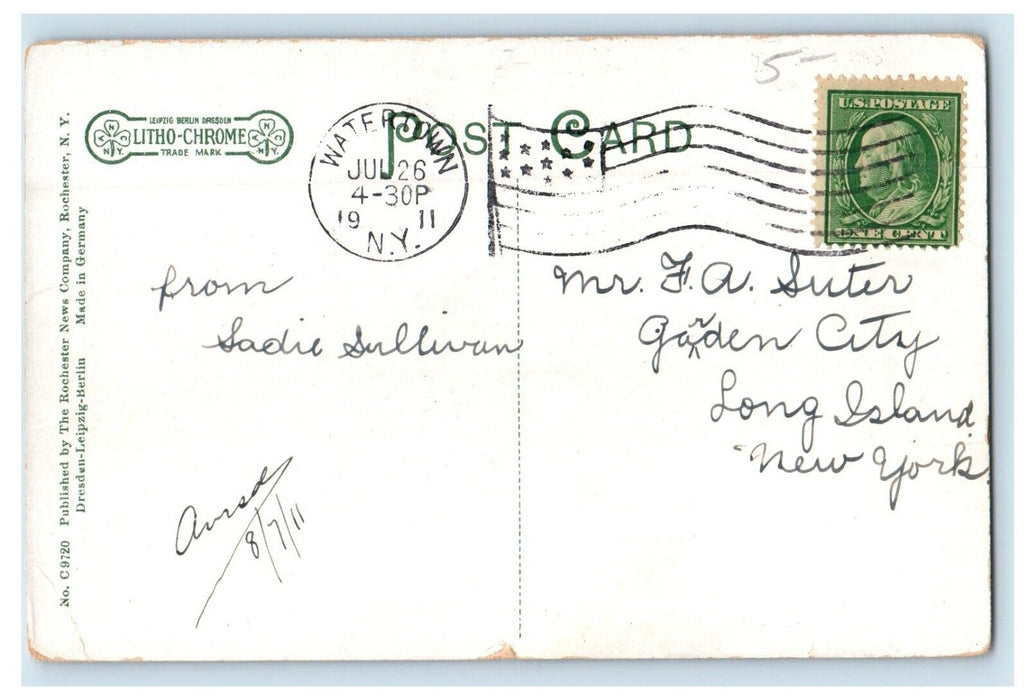 5-
POST CARD
LEIPZIG BERLIN DRESDEN
LITHO-CHROME
TRADE MARK
WATERTOWN
JUL 26
4-30P
19 11
N.Y.
U.S. POSTAGE
ONE CENT
No. C9720 Published by The Rochester News Company, Rochester, N. Y.
Dresden-Leipzig-Berlin Made in Germany
from
Sadie Sullivan
8/7/11
Mr. F. A. Suter
Garden City
Long Island
New York